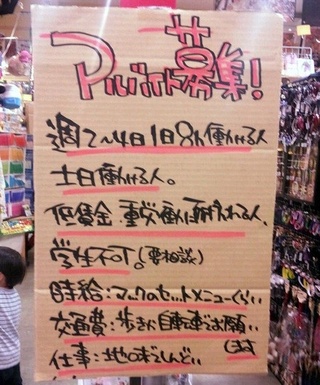 アルバイト募集!
週2〜4日1日8h働ける人
土日働ける人。
低賃金、重労働に耐えれる人、
学生不可。(要相談)
時給:マックのセットメニューぐらい
交通費:歩きか自転車でお願い
します
仕事:地味にしんどい